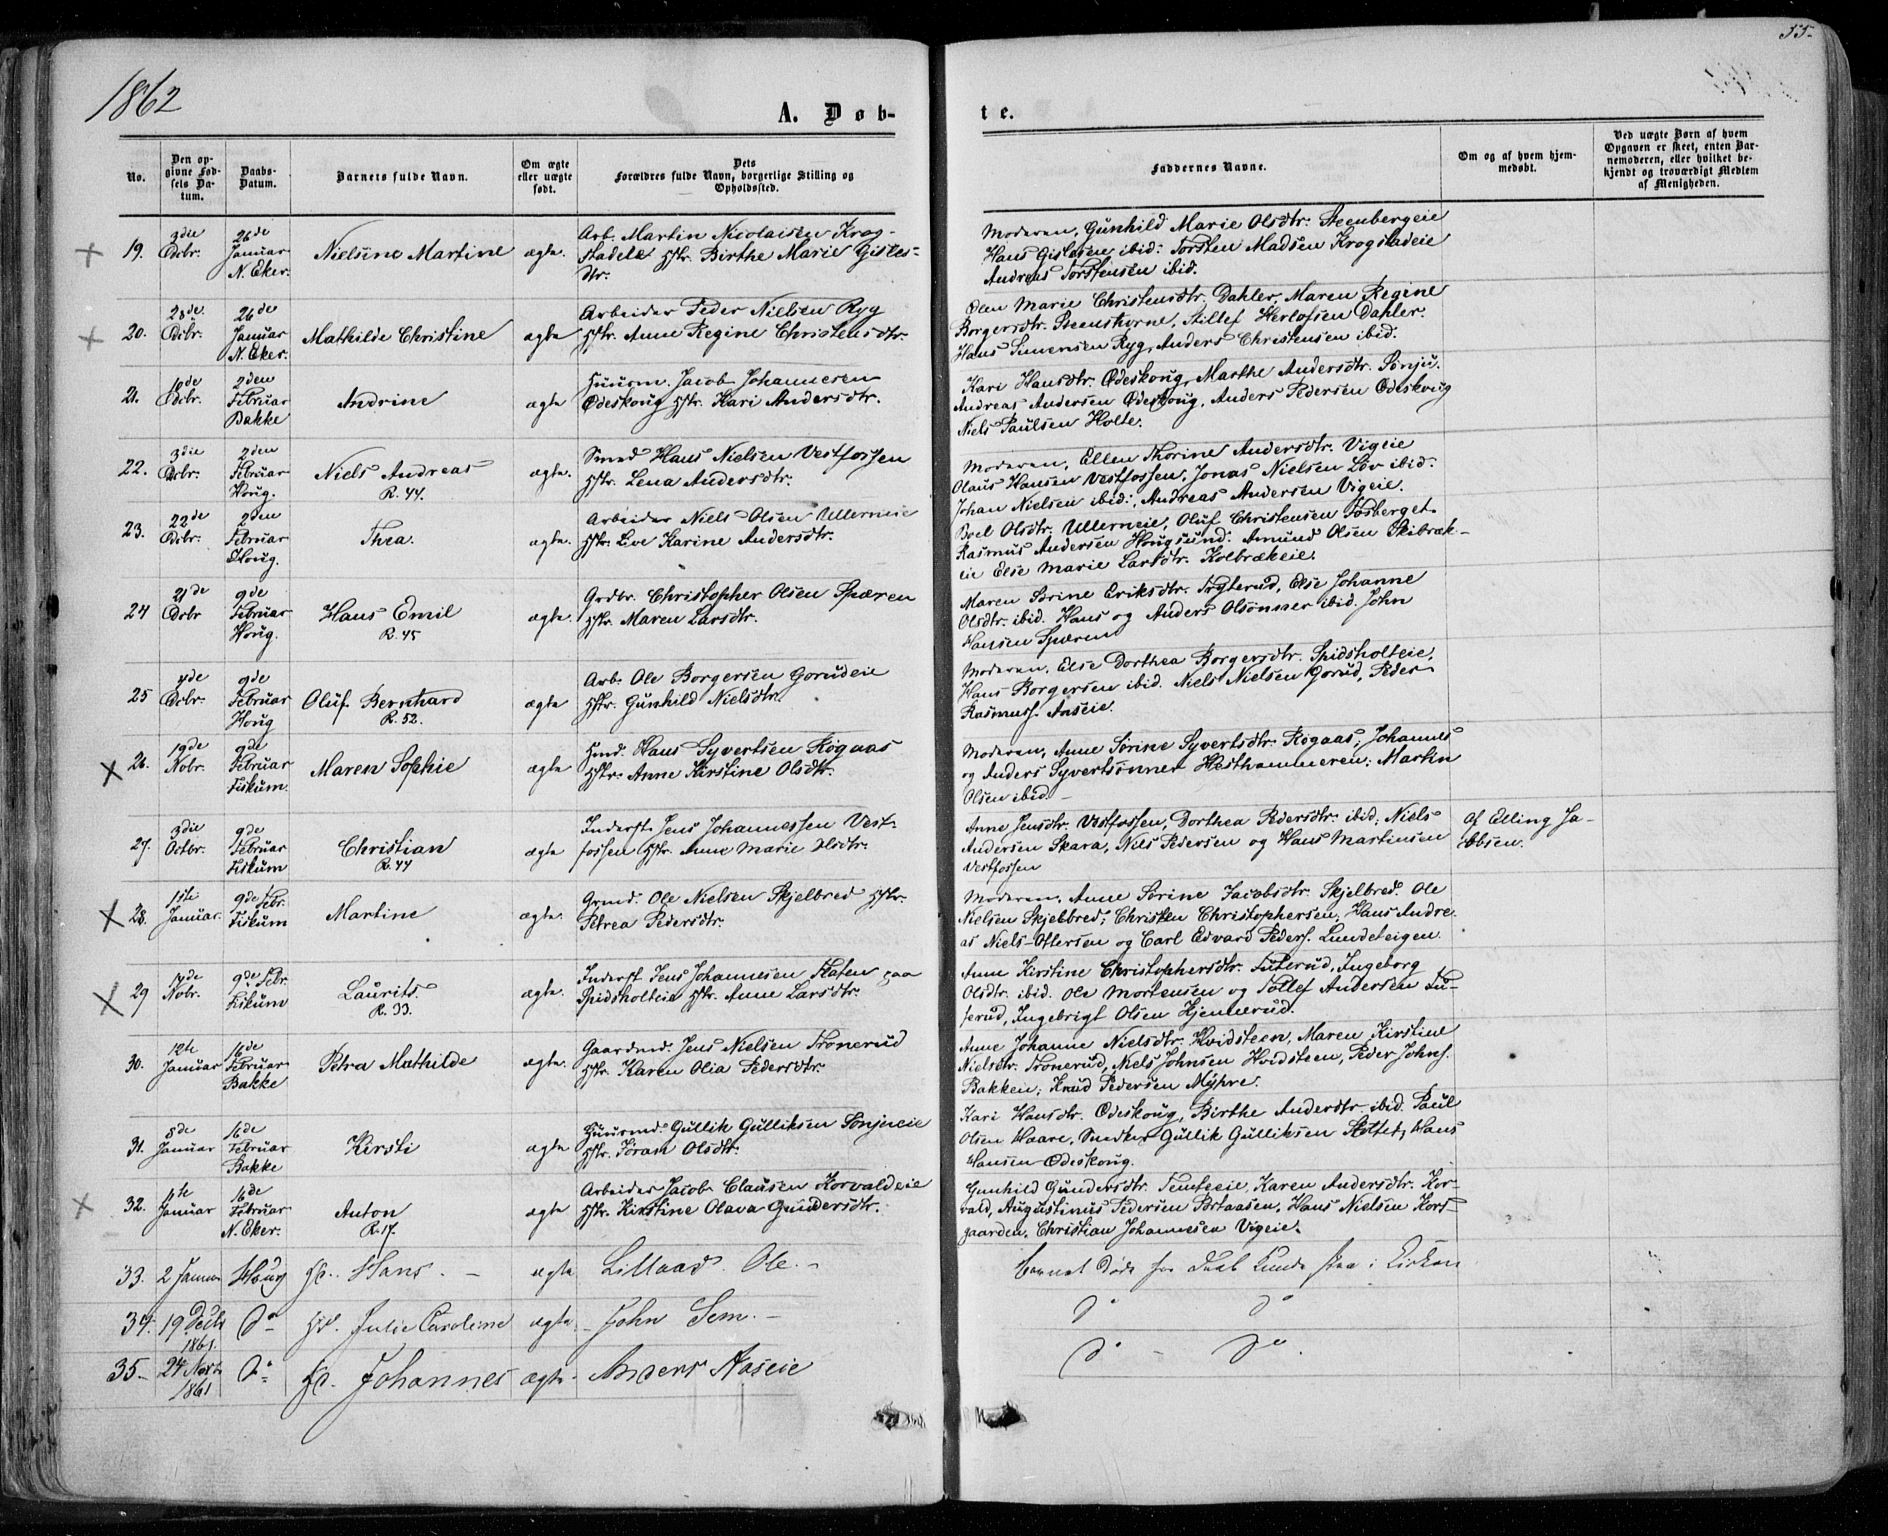 55.
1862
A. Døb-
te.
No.
Den opgivne Fødsels Datum.
Daabs-Datum.
Barnets fulde Navn.
Om ægte eller uægte født.
Dets Forældres fulde Navn, borgerlige Stilling og Opholdssted.
Faddernes Navne.
Om og af hvem hjemmedøbt.
Ved uægte Børn af hvem Opgaven er skeet, enten Barnemoderen, eller hvilket bekjendt og troværdigt Medlem af Menigheden.
19. 3die Decbr. 26de Januar N. Eker. Nielsine Martine ægte. Arb. Martin Nicolaisen Krog-
stadeie Hstr. Birthe Marie Gisles-
dtr.
Moderen, Gunhild Marie Olsdtr. Steenbergeie
Hans Gislesen ibid: Torsten Madsen Krogstadeie
Andreas Torstensen ibid.
20. 28de Decbr. 26de Januar N. Eker. Mathilde Christine ægte Arbeider Peder Nielsen Ryg
Hstr. Anne Regine Christensdtr.
Elen Marie Christensdtr. Dahler, Maren Regine
Borgersdtr. Steenshorne, Stillef Herlofsen Dahler.
Hans Simensen Ryg, Anders Christensen ibid.
21. 10de Decbr. 2den Februar Bakke Andrine ægte Huusm. Jacob Johannesen
Ødeskoug Hstr. Kari Andersdtr.
Kari Hansdtr. Ødeskoug, Marthe Andersdtr. Sønju.
Andreas Andersen Ødeskoug, Anders Pedersen Ødeskoug
Niels Paulsen Holte.
22. 3die Decbr. 2den Februar Houg. Niels Andreas R. 44. ægte. Smed Hans Nielsen Vestfossen
Hstr. Lena Andersdtr.
Moderen, Ellen Thorine Andersdtr. Vigeie
Olaus Hansen Vestfossen, Jonas Nielsen Løv ibid:
Johan Nielsen ibid:, Andreas Andersen Vigeie.
23. 22de Decbr. 2den Februar Houg. Thea. ægte. Arbeider Niels Olsen Ullerneie
Hstr. Live Karine Andersdtr.
Boel Olsdtr. Ullerneie, Oluf Christensen Fosberget
Rasmus Andersen Hougsund: Amund Olsen Skibræk-
eie Else Marie Larsdtr. Kolbrækeie.
24 21de Decbr 9de Februar Houg. Hans Emil R. 45 ægte. Grdbr. Christopher Olsen Spæren
Hstr. Maren Larsdtr.
Maren Sørine Eriksdtr. Tryterud, Else Johanne
Olsdtr. ibid. Hans og Anders Olsønner ibid. John
Hansen Spæren
25 4de Decbr. 9de Februar Houg Oluf Bernhard R. 52. ægte Arb. Ole Borgersen Gorudeie
Hstr. Gunhild Nielsdtr.
Moderen, Else Dorthea Borgersdtr. Spidsholteie,
Hans Borgersen ibid. Niels Nielsen Gorud, Peder
Rasmuss. Aaseie.
26. 19de Nobr. 9de Februar Fiskum. Maren Sophie ægte Hans Syvertsen Røgaas
Hstr. Anne Kirstine Olsdtr.
Moderen, Anne Sørine Syvertsdtr. Røgaas; Johannes
og Anders Syvertsønner Hesthammeren: Martin
Olsen ibid.
27. 3die Octbr. 9de Februar Fiskum Christian R. 44 ægte Inderst Jens Johannessen Vest-
fossen Hstr. Anne Marie Olsdtr.
Anne Jensdtr. Vestfossen, Dorthea Pedersdtr. ibid. Niels
Andersen Skara, Nils Pedersen og Hans Martinsen
Vestfossen
Af Elling Ja-
cobsen.
28. 1ste Januar. 9de Febr. Fiskum Martine ægte. Grmd. Ole Nielsen Skjelbred Hstr.
Petrea Pedersdtr.
Moderen, Anne Sørine Jacobsdtr. Skjelbred. Ole
Nielsen Skjelbred; Christen Christophersen, Hans Andre-
as Niels-Oftersen og Carl Edvard Peders. Lundeteigen.
29 14de Nobr. 9de Febr. Fiskum Laurits. R. 33. ægte. Inderst. Jens Johannesen Flaten paa
Spidsholteie Hstr. Anne Larsdtr.
Anne Kirstine Christophersdtr. Fuserud, Ingeborg
Olsdtr. ibid. Ole Mortensen og Tollef Andersen Fu-
serud, Ingebrigt Olsen Kjennerud.
30. 12te Januar 16de Februar Bakke Petra Mathilde ægte. Gaardmd. Jens Nielsen Tronerud
Hstr. Karen Olia Pedersdtr.
Anne Johanne Nielsdtr. Hvidsteen, Maren Kirstine
Nielsdtr. Tronerud, Niels Johnsen Hvidsteen, Peder Johns.
Bakken; Knud Pedersen Myhre.
31. 8de Januar 16de Februar Bakke Kirsti ægte Huusmd. Gullik Gulliksen Sønjueie
Hstr. Joran Olsdtr.
Kari Hansdtr. Ødeskoug, Birthe Andersdtr ibid. Paul
Olsen Haare, Snedker Gullik Gulliksen Slottet, Hans
Hansen Ødeskoug.
32. 11te Januar 16de Februar N. Eker. Anton R. 17. ægte Arbeider Jacob Clausen Korvaldeie
Hstr. Kirstine Olava Gundersdtr.
Gunhild Gundersdtr. Temteeie, Karen Andersdtr. Kor-
vald, Augustinus Pedersen Portaasen, Hans Nielsen Kors-
gaarden, Christian Johannesen Vigeie.
33. 2 Januar Houg Hans. ægte Lillaas Ole.
Barnet døde før Daab kunde skee i Kirken
34. 19 Decbr 1861. Do Julie Caroline ægte John Sem.
Do Do
35. 24 Novbr 1861 Do Johannes ægte Anders Aaseie
Do - Do.